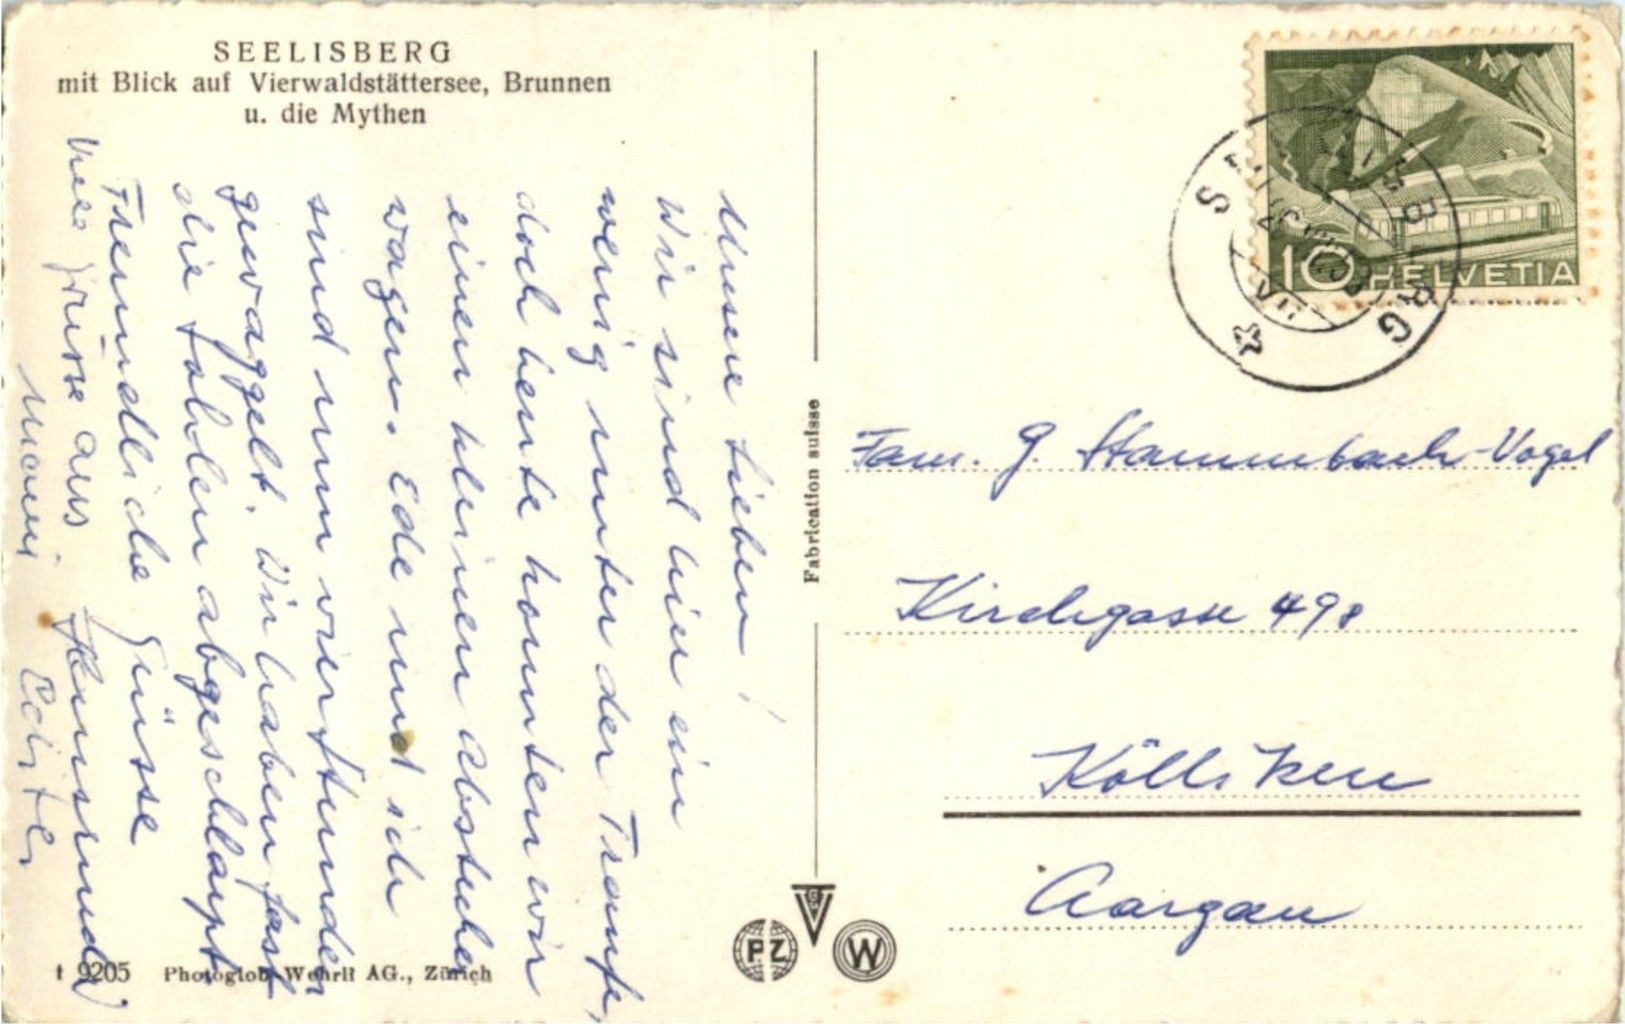 SEELISBERG
mit Blick auf Vierwaldstättersee, Brunnen
u. die Mythen
Unsere Lieben!
Wir sind hier ein
wenig unter der Traufe,
doch heute konnten wir
einen kleinen Abstecher
wagen. Ede und ich
sind nun vier Stunden
gewaggelt. Wir haben fast
die Sohlen abgeschlarpt
Freundliche Grüsse
Viele Grüsse aus
Fabrication suisse
t 9205 Photoglob-Wehrli AG., Zürich
PZ
W
SEELISBERG
10 HELVETIA
Fam. G. Stammbach-Vogel
Kirchgasse 498
Kölliken
Aargau